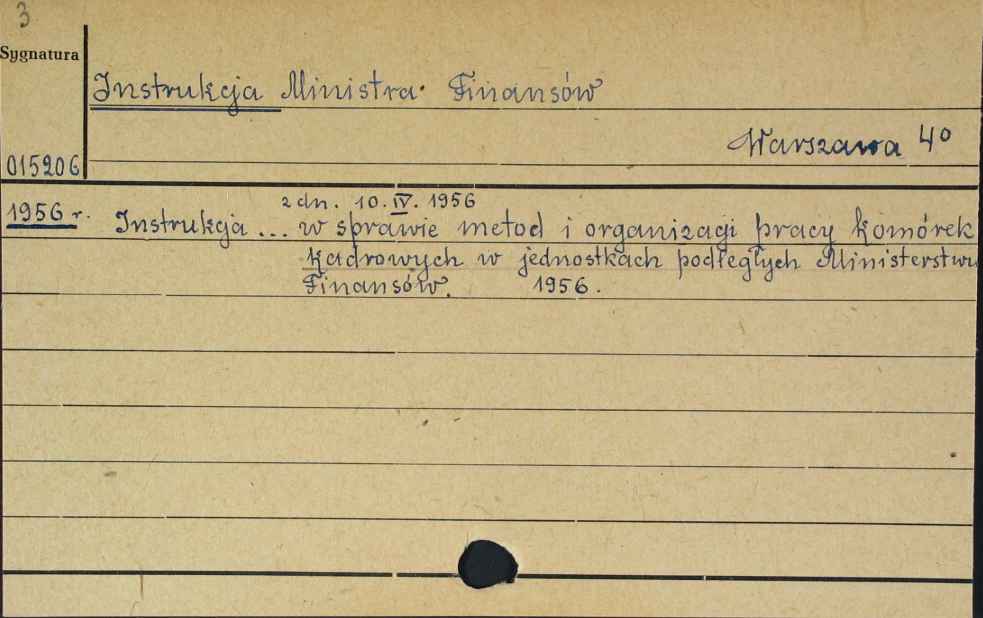 3
Sygnatura
Instrukcja Ministra Finansów
Warszawa 4º
015206
z dn. 10.IV. 1956
1956 r. Instrukcja ... w sprawie metod i organizacji pracy komórek
kadrowych w jednostkach podległych Ministerstwu
Finansów. 1956.